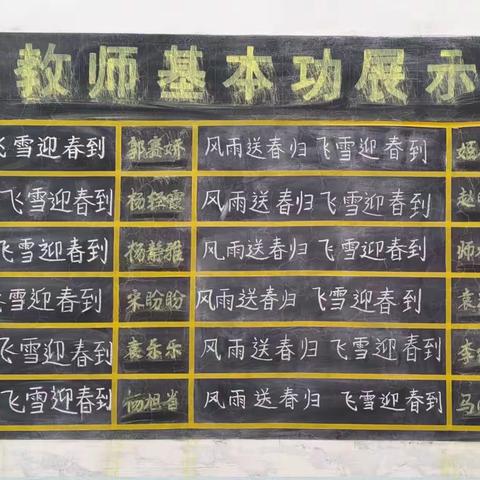 教师基本功展示
飞雪迎春到 郭嘉娇 风雨送春归 飞雪迎春到 姬
飞雪迎春到 杨铨霞 风雨送春归 飞雪迎春到 赵
飞雪迎春到 杨静雅 风雨送春归 飞雪迎春到 师
飞雪迎春到 宋盼盼 风雨送春归 飞雪迎春到 袁
飞雪迎春到 袁乐乐 风雨送春归 飞雪迎春到 李
飞雪迎春到 杨旭省 风雨送春归 飞雪迎春到 马